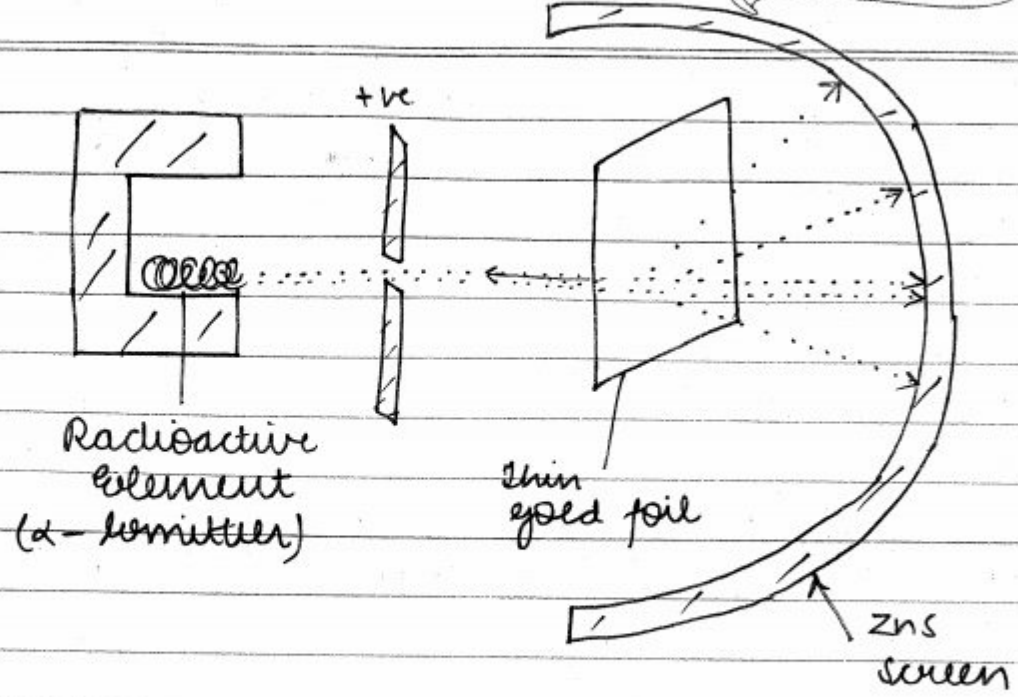 +ve
Radioactive
Element
(α- Emitter)
Thin
gold foil
ZnS
screen